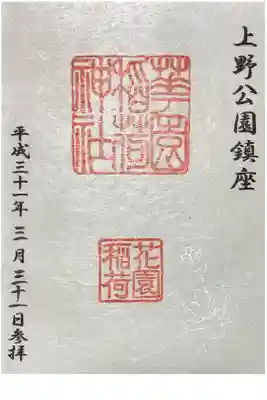 上野公園鎮座
華園
稲荷
神社
花園
稲荷
平成三十一年 三月 三十一日参拝